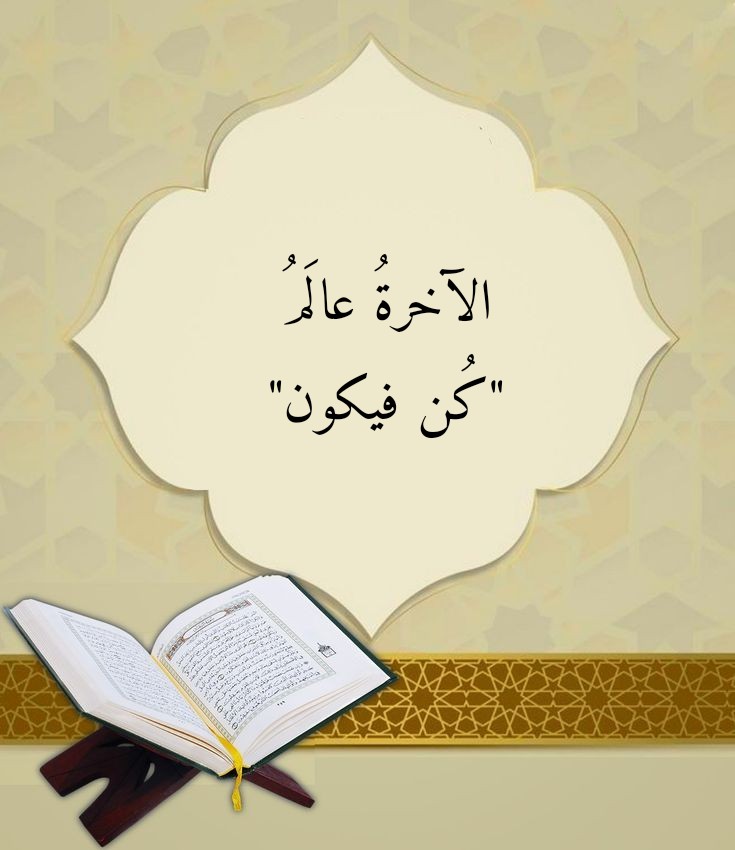 الآخرةُ عالَمُ
"كُن فيكون"